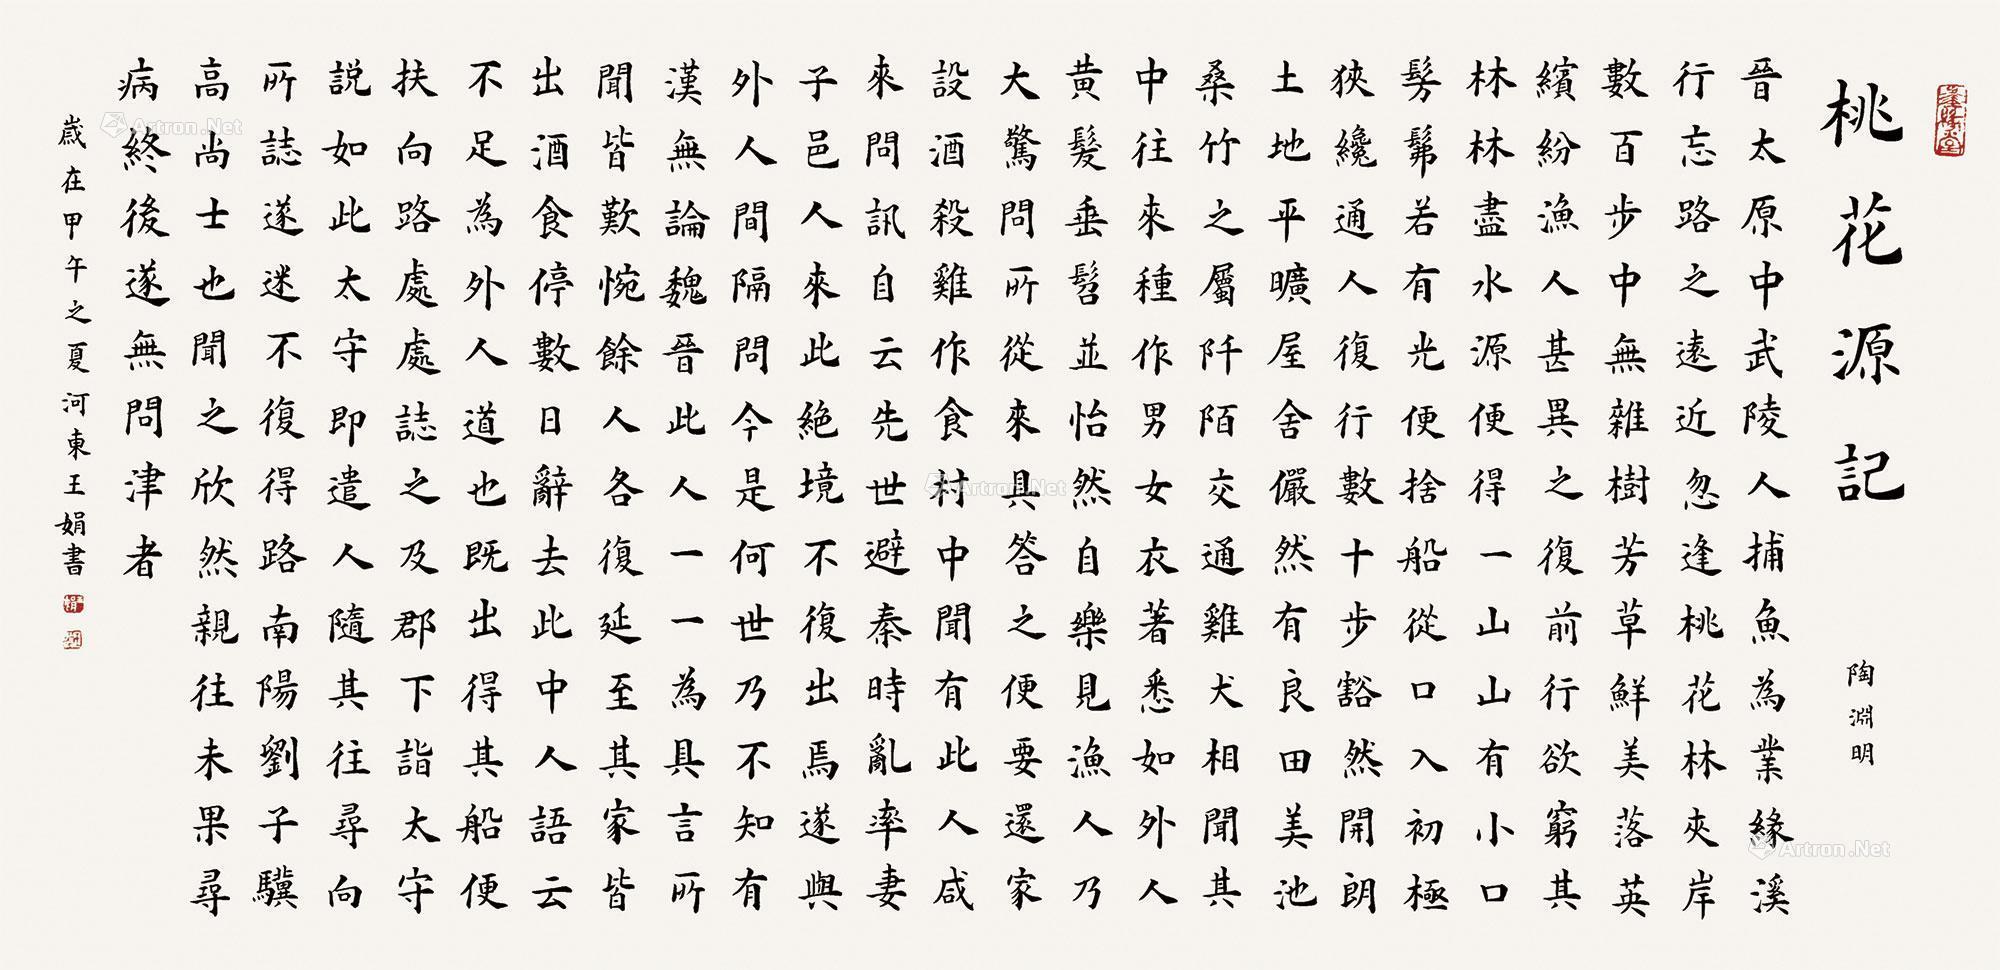 桃花源記
陶淵明
晉太原中武陵人捕魚為業緣溪
行忘路之遠近忽逢桃花林夾岸
數百步中無雜樹芳草鮮美落英
繽紛漁人甚異之復前行欲窮其
林林盡水源便得一山山有小口
髣髴若有光便捨船從口入初極
狹纔通人復行數十步豁然開朗
土地平曠屋舍儼然有良田美池
桑竹之屬阡陌交通雞犬相聞其
中往來種作男女衣著悉如外人
黃髮垂髫並怡然自樂見漁人乃
大驚問所從來具答之便要還家
設酒殺雞作食村中聞有此人咸
來問訊自云先世避秦時亂率妻
子邑人來此絕境不復出焉遂與
外人間隔問今是何世乃不知有
漢無論魏晉此人一一為具言所
聞皆歎惋餘人各復延至其家皆
出酒食停數日辭去此中人語云
不足為外人道也既出得其船便
扶向路處處誌之及郡下詣太守
説如此太守即遣人隨其往尋向
所誌遂迷不復得路南陽劉子驥
高尚士也聞之欣然親往未果尋
病終後遂無問津者
歲在甲午之夏河東王娟書
Artron.Net
Artron.Net
Artron.Net